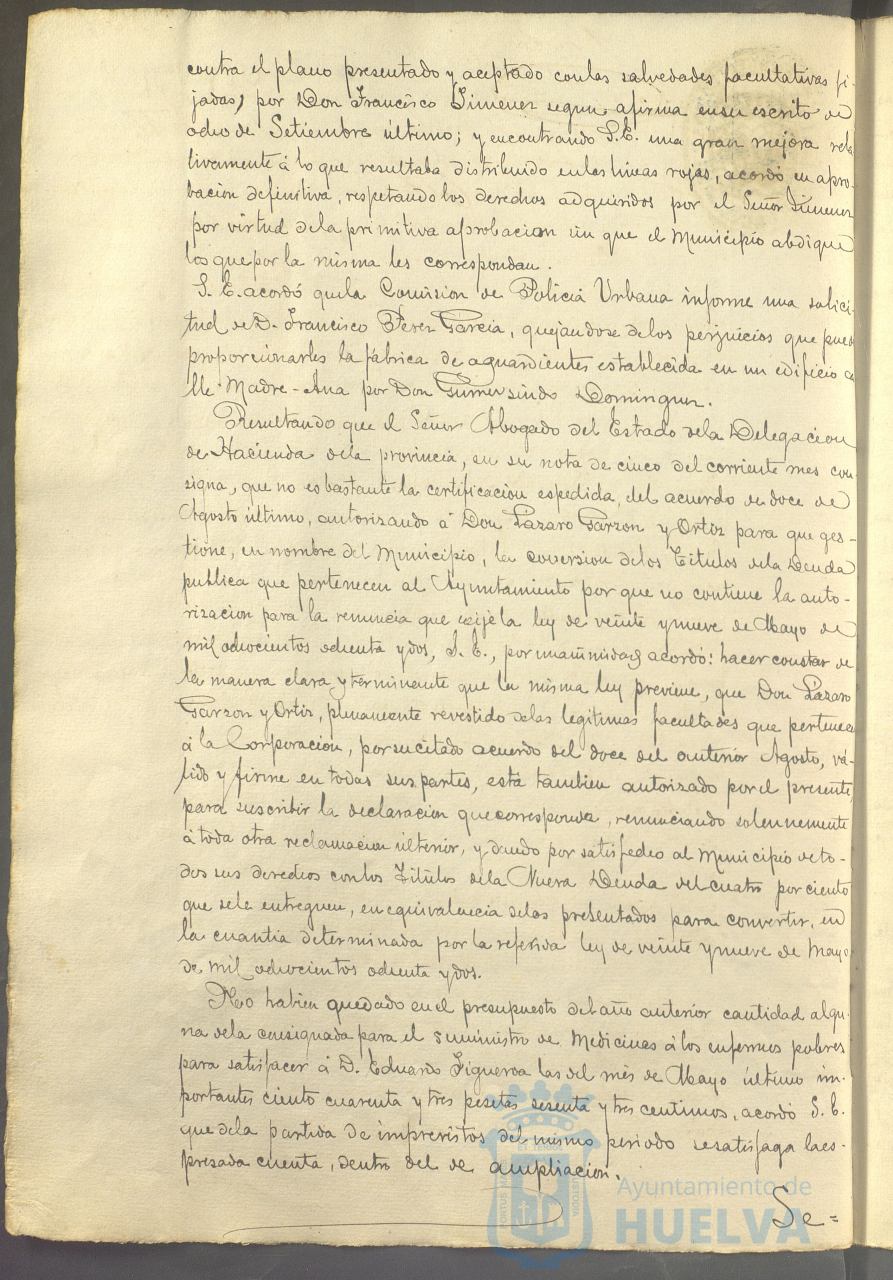 contra el plano presentado y aceptado con las salvedades facultativas fi-
jadas, por Don Francisco Jimenez segun afirma en su escrito de
ocho de Setiembre último; y encontrando S.E. una gran mejora rela
tivamente á lo que resultaba distribuido en las lineas rojas, acordó su apro-
bacion definitiva, respetando los derechos adquiridos por el Señor Jimenez
por virtud de la primitiva aprobacion sin que el Municipio abdique
los que por la misma les correspondan.
S. E. acordó que la Comision de Policia Urbana informe una solici-
tud de D. Francisco Perez Garcia, quejandose de los perjuicios que puede
proporcionarles la fábrica de aguardientes establecida en un edificio ca
lle Madre-Ana por Don Gumersindo Dominguez.
Resultando que el Señor Abogado del Estado de la Delegacion
de Hacienda de la provincia, en su nota de cinco del corriente mes con-
signa, que no es bastante la certificacion espedida, del acuerdo de doce de
Agosto último, autorizando á Don Lázaro Garzon y Ortiz para que ges-
tione, en nombre del Municipio, la coversion de los Titulos de la Deuda
publica que pertenecen al Ayuntamiento por que no contiene la auto-
rizacion para la renuncia que exije la ley de veinte y nueve de Mayo de
mil ochocientos ochenta y dos, S. E., por unanimidad acordó: hacer constar de
la manera clara y terminante que la misma ley previene, que Don Lázaro
Garzon y Ortiz, plenamente revestido de las legitimas facultades que pertenece
á la Corporacion, por su citado acuerdo del doce del anterior Agosto, vá-
lido y firme en todas sus partes, está tambien autorizado por el presente,
para suscribir la declaracion que corresponda, renunciando solennemente
á toda otra reclamacion últerior, y dando por satisfecho al Municipio de to-
dos sus derechos con los Titulos de la Nueva Deuda del cuatro por ciento
que se le entreguen, en equivalencia de los presentados para convertir, en
la cuantia determinada por la referida ley de veinte y nueve de Mayo
de mil ochocientos ochenta y dos.
No habien quedado en el presupuesto del año anterior cantidad algu-
na de la consignada para el suministro de Medicinas á los enfermos pobres
para satisfacer á D. Eduardo Figueroa las del mes de Mayo último im-
portantes ciento cuarenta y tres pesetas sesenta y tres centimos, acordó S. E.
que de la partida de imprevistos del mismo periodo se satisfaga la es-
presada cuenta, dentro del de ampliacion.
Se=
Ayuntamiento de
HUELVA